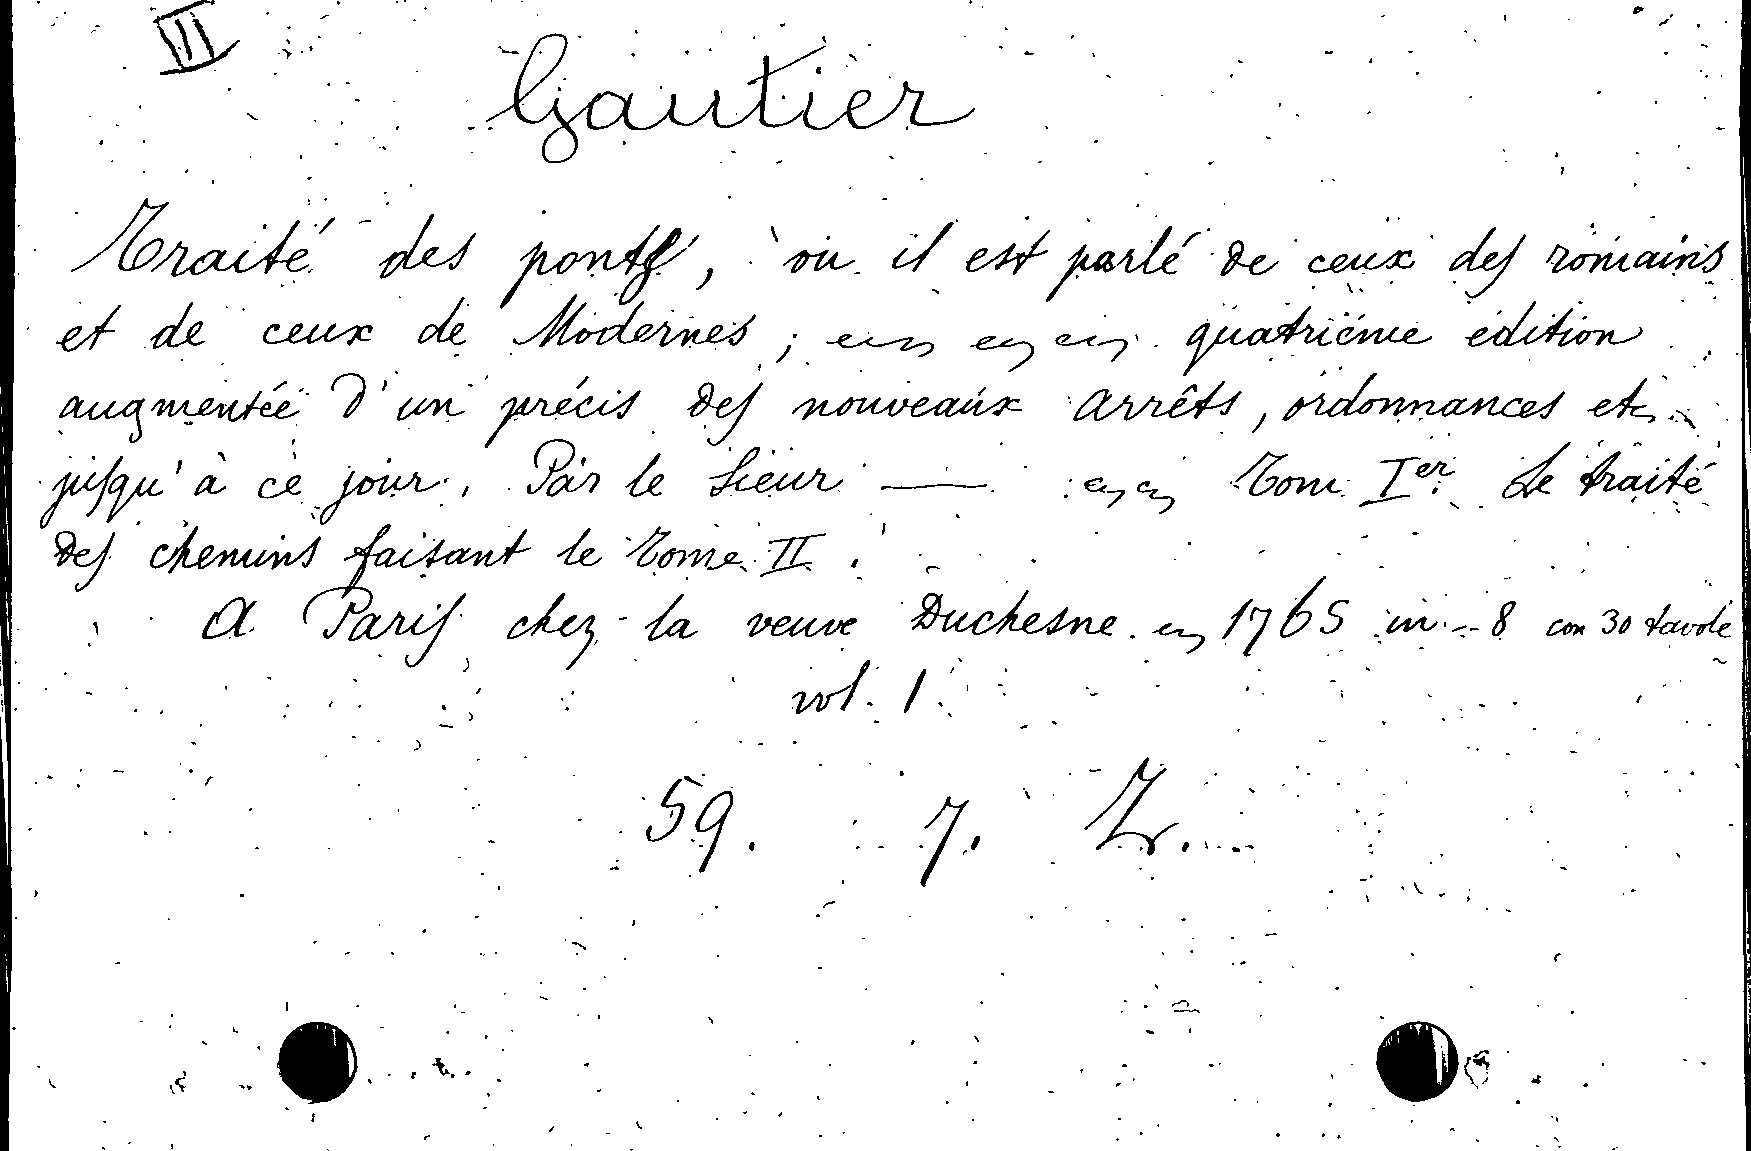 II
Gautier
Traité des ponts, où il est parlé de ceux des romains
et de ceux de Modernes; quatrième édition
augmentée d'un précis des nouveaux arrêts, ordonnances etc
jusqu'à ce jour. Par le Sieur — Tom. Ier. Le traité
des chemins faisant le Tome II.
A Paris chez la veuve Duchesne 1765 in-8 con 30 tavole
vol. 1
59. 7.